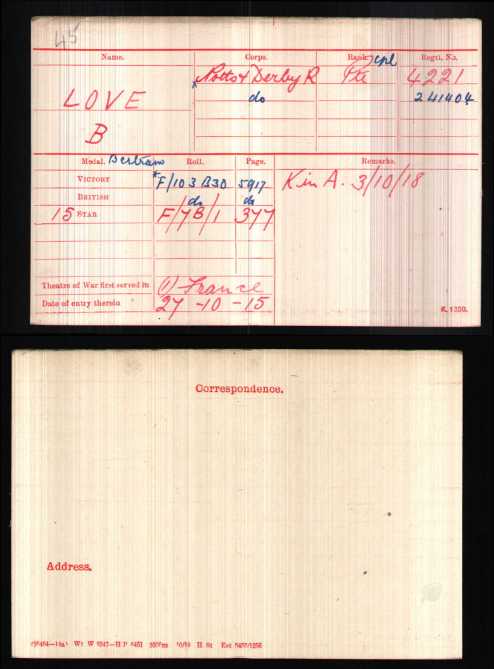 45
Name. Corps. Rank. Cpl Regtl. No.
LOVE * Notts & Derby R Pte 4221
do 241404
B
Medal. Bertram Roll. Page. Remarks.
VICTORY *F/103 B30 5917 K in A. 3/10/18
BRITISH do do
15 STAR F/7B/1 377
Theatre of War first served in (1) France
Date of entry therein 27-10-15
K. 1380.
Correspondence.
Address.